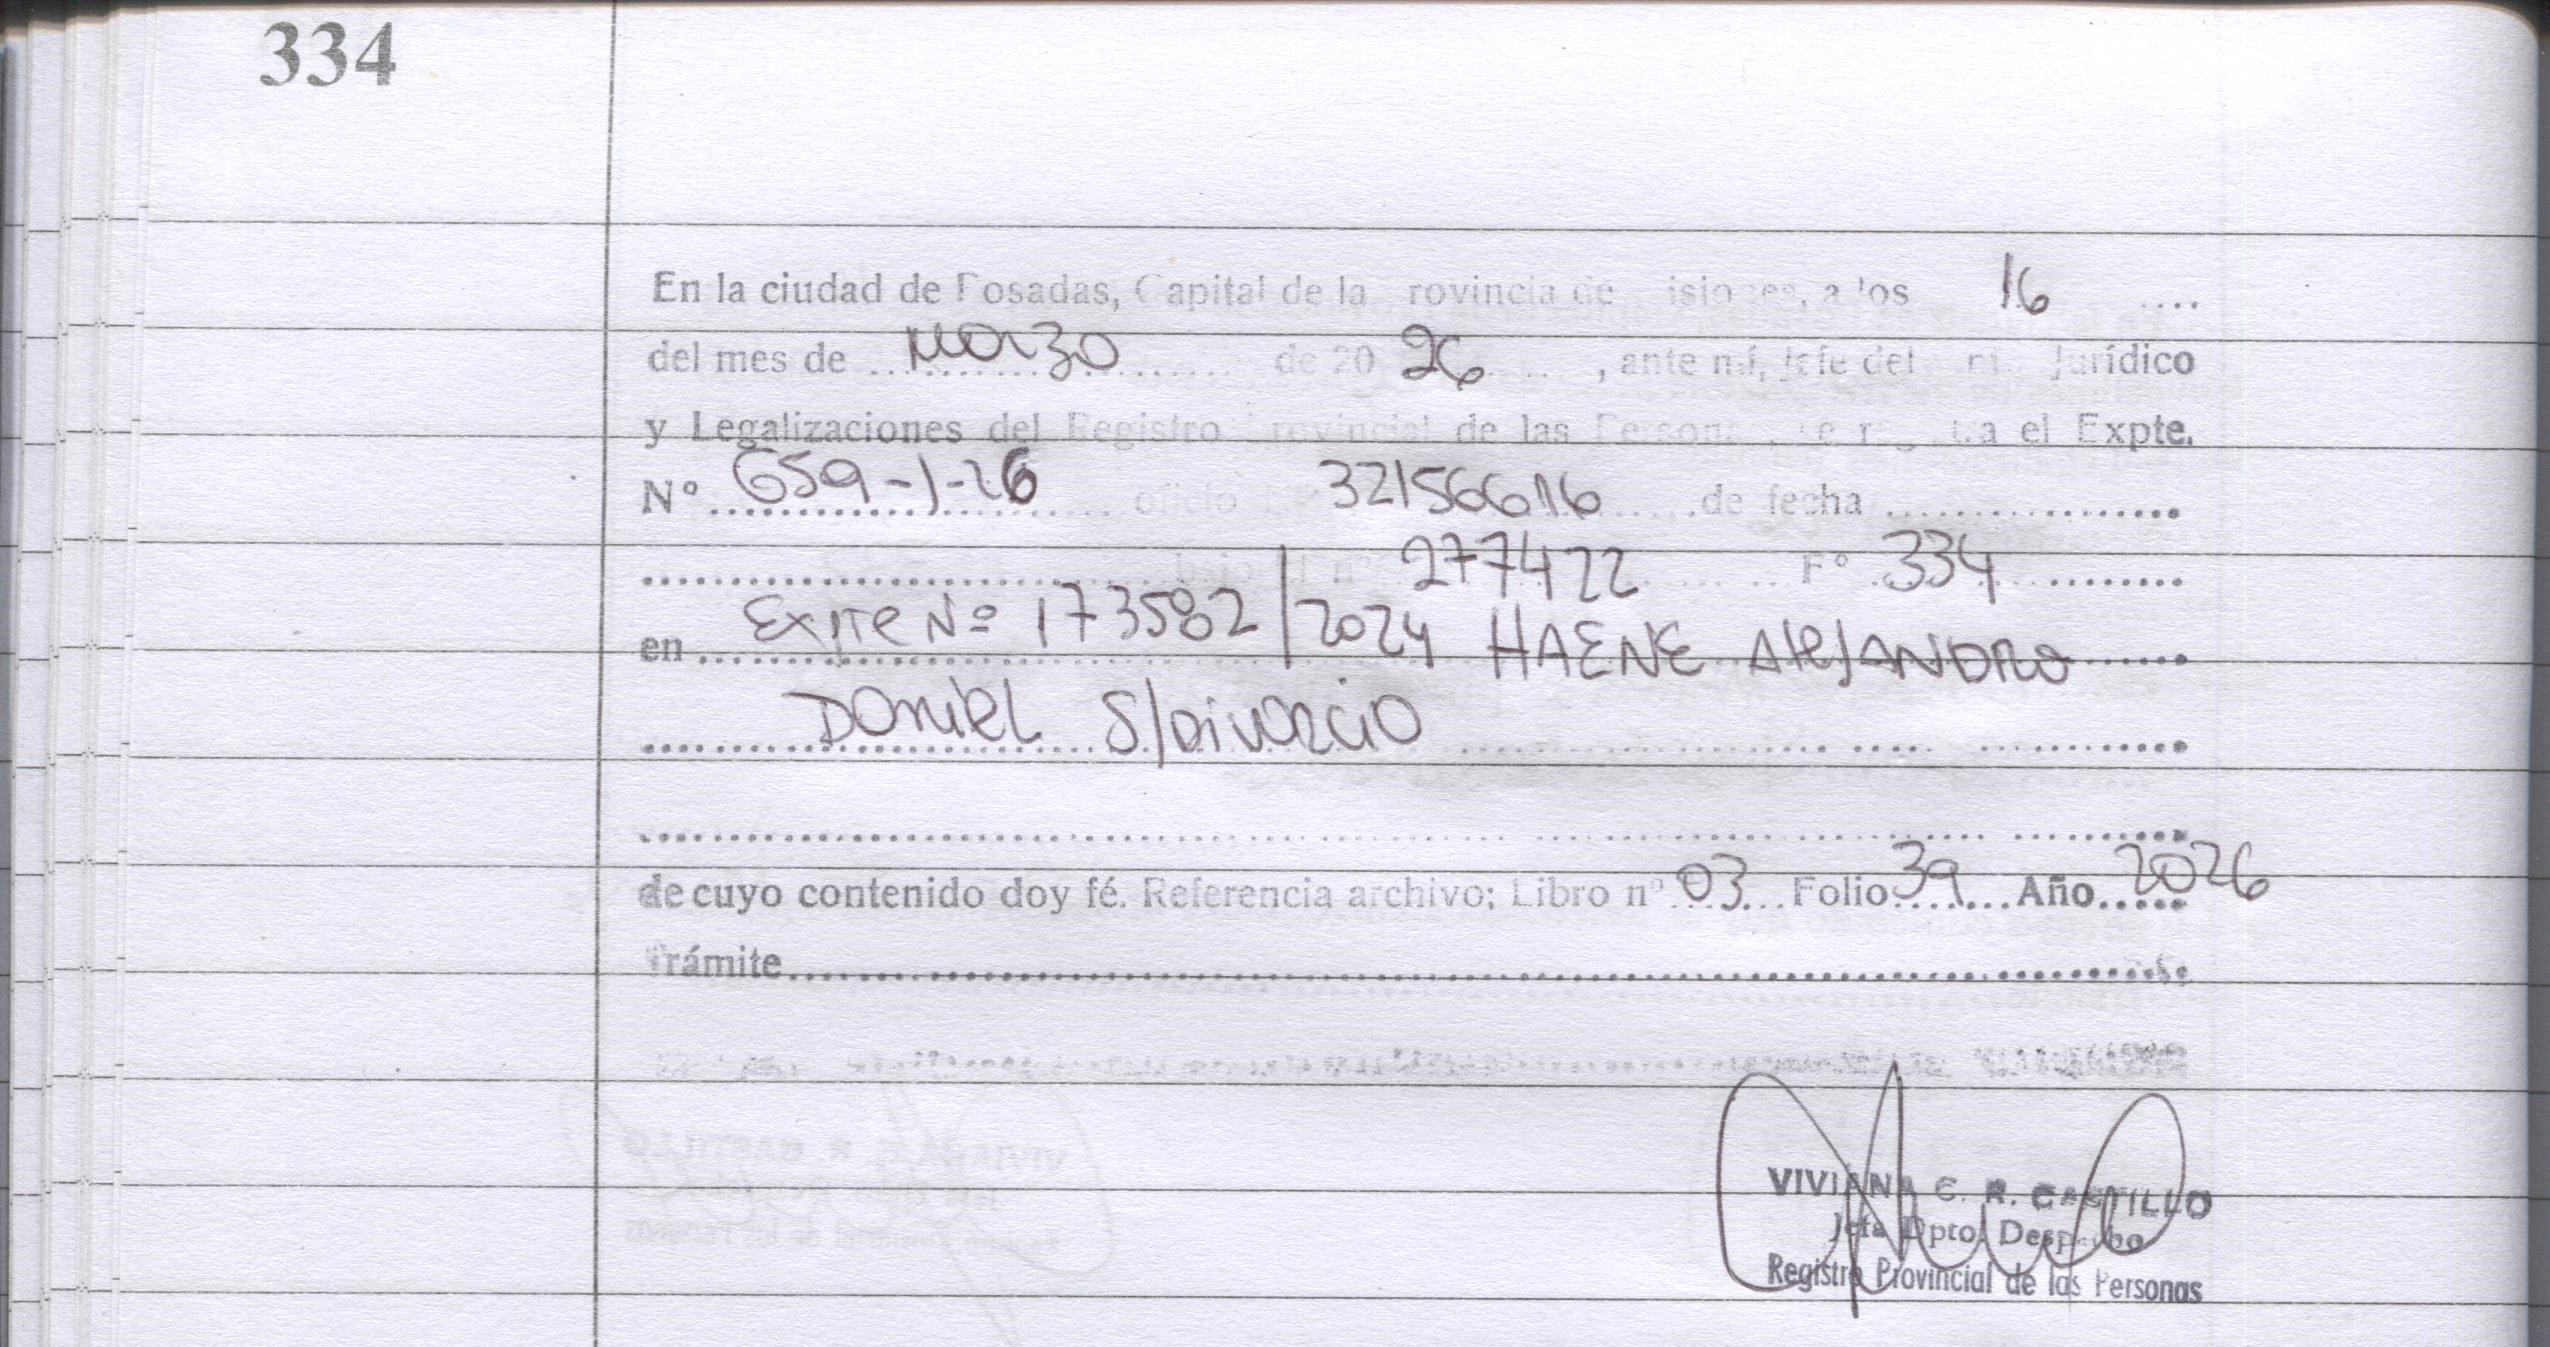 334
En la ciudad de Posadas, Capital de la Provincia de Misiones, a los 16 ....
del mes de ........ Marzo ........ de 20 26 ...., ante mí, Jefe del Jurídico
y Legalizaciones del Registro Provincial de las Personas, se registra el Expte.
Nº 659-1-26 oficio 32156616 de fecha ................
................ bajo el nº 277422 Fº 334 ........
en Expte Nº 173582/2024 HAENE AleJANDRO
DANIEL S/DIVORCIO ................
................
de cuyo contenido doy fé. Referencia archivo; Libro nº 03 Folio 39 Año 2026
Trámite................
VIVIANA C. R. CASTILLO
Jefa Dpto. Despacho
Registro Provincial de las Personas